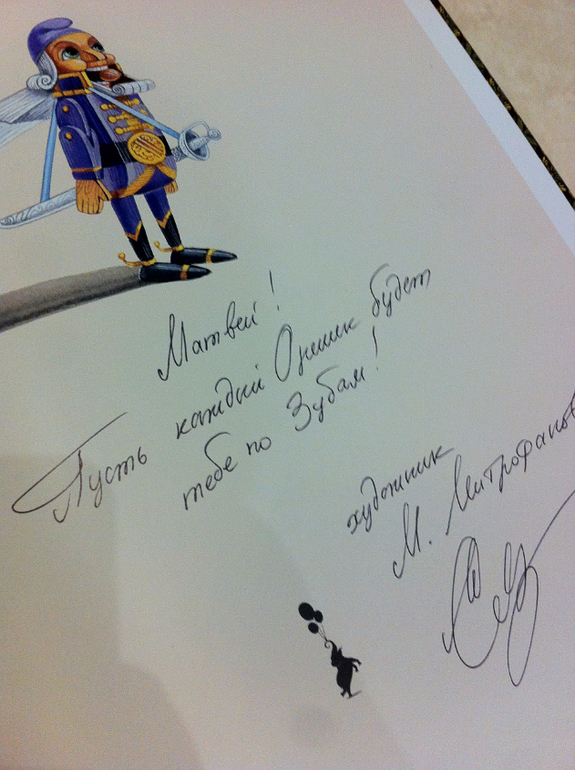 Матвей!
Пусть каждый Орешик будет
тебе по Зубам!
художник
М. Митрофанов